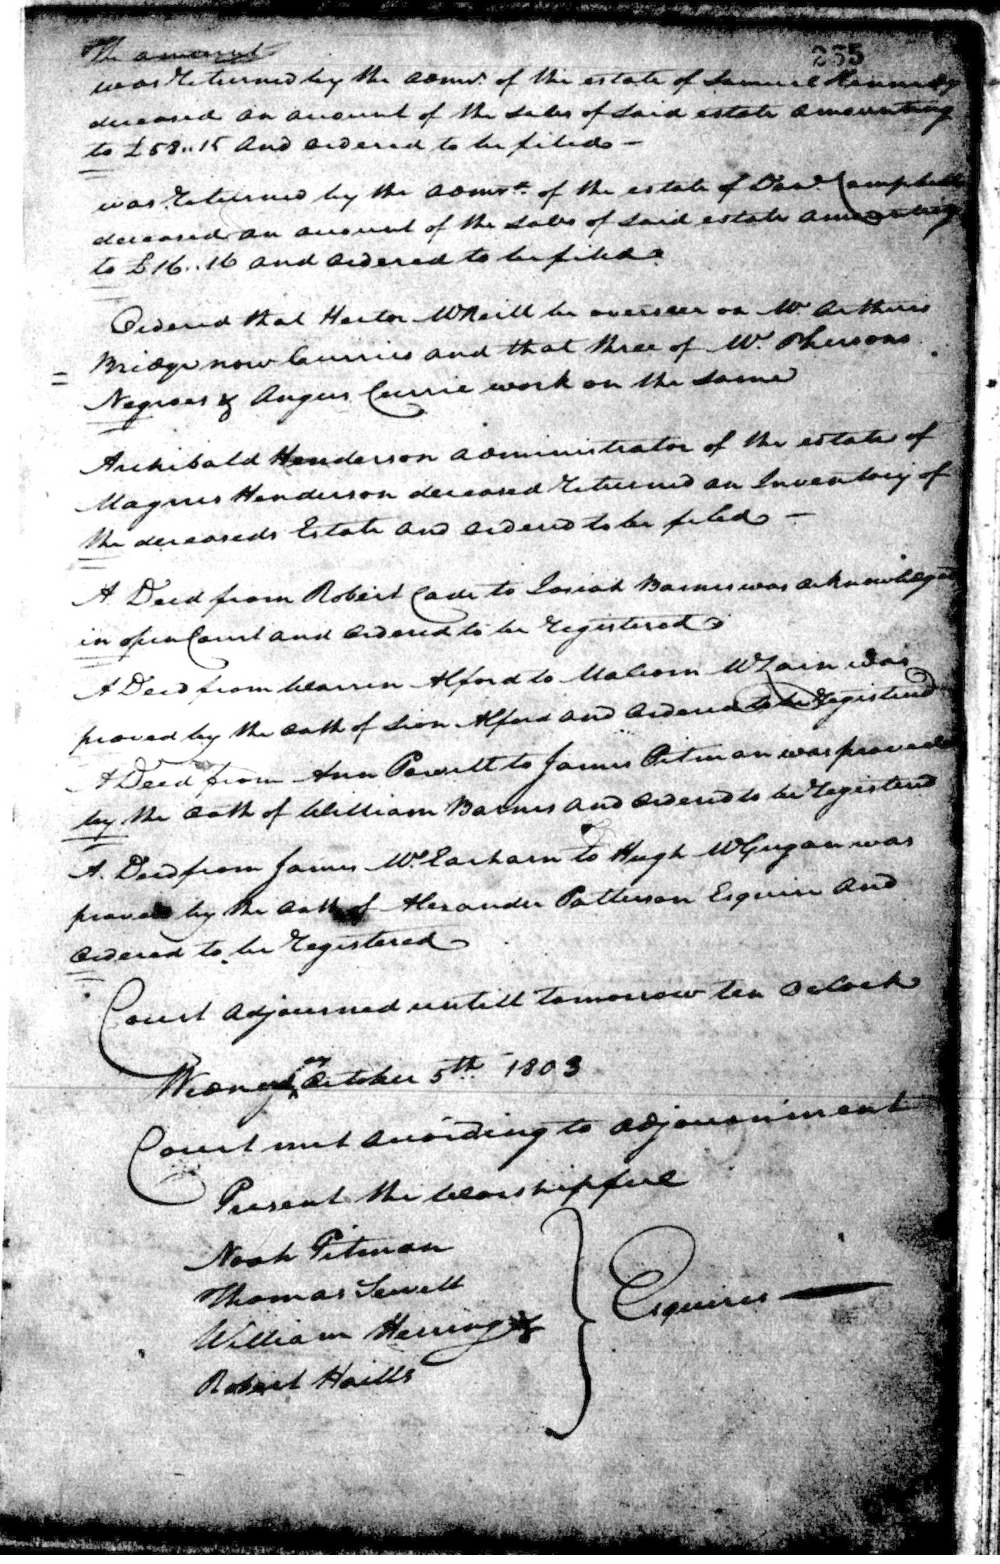 255
The amount
was returned by the admr. of the estate of Samuel Kennedy
deceased an account of the sales of said estate amounting
to £58..15 and ordered to be filed —
was returned by the admr. of the estate of Dav. Campbell
deceased an account of the sales of said estate amounting
to £16..16 and ordered to be filed
Ordered that Hector McNeill be overseer on Mc Arthurs
Bridge now Curries and that three of Mc Phersons
Negroes & Angus Currie work on the same
Archibald Henderson administrator of the estate of
Magnus Henderson deceased returned an Inventory of
the deceaseds Estate and ordered to be filed —
A Deed from Robert Cade to Josiah Barnes was acknowledged
in open Court and ordered to be registered
A Deed from Warren Alford to Malcom McLain was
proved by the oath of Sion Alford and ordered to be registered
A Deed from Ann Powell to James Pitman was proved
by the oath of William Barnes and ordered to be registered
A. Deed from James Mc Eacharn to Hugh McGugan was
proved by the oath of Alexander Patterson Esquire and
ordered to be registered
Court adjourned untill tomorrow ten oclock
Wednesday October 5th 1803
Court met according to adjournment
Present the Worshipfull
Noah Pitman
Thomas Sewell
William Herring &
Robert Hails
Esquires —